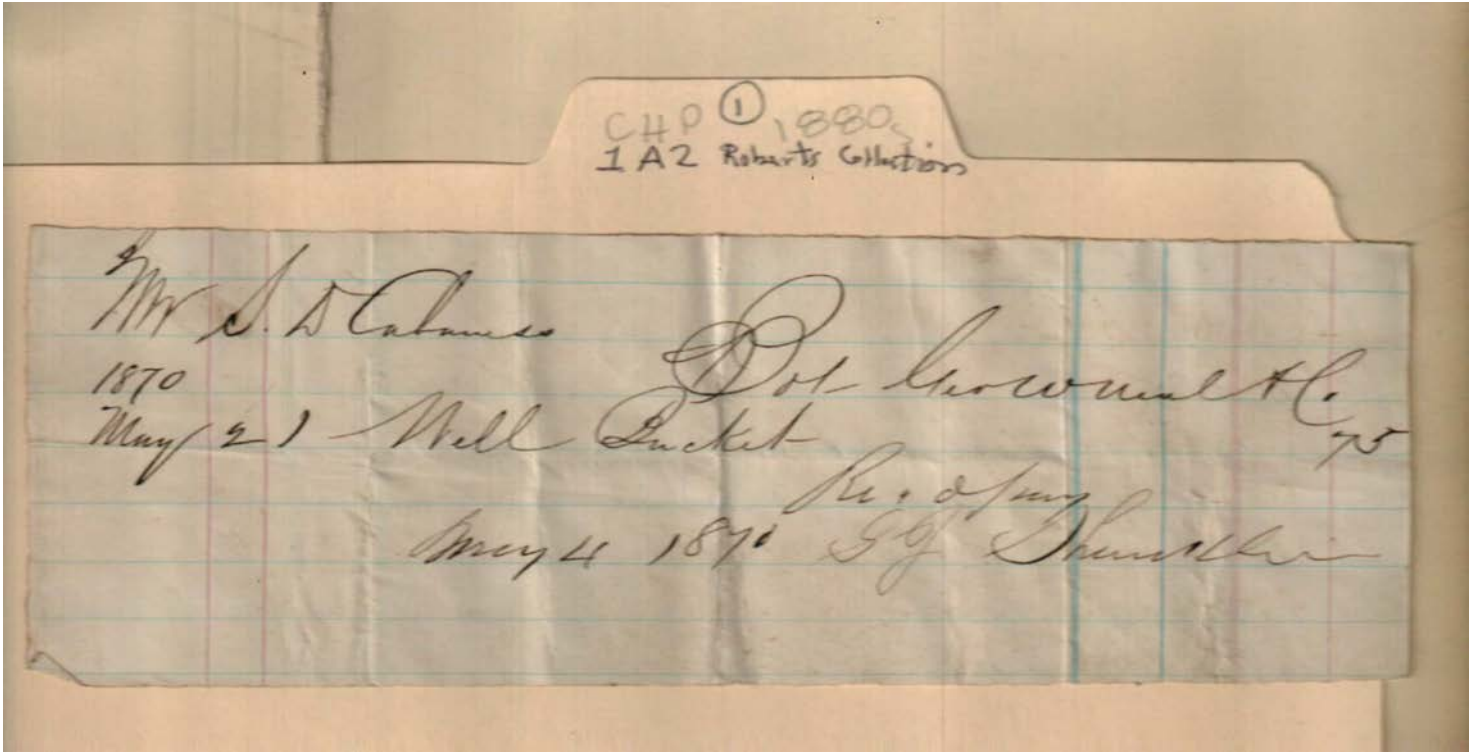 CHP ① 1880s
1A2 Roberts Collection
Mr S. D Cabaness
Bot Geo W Neal & Co.
1870
May 2 1 Well Bucket 75
Rec. d pay
May 4 1870 S J